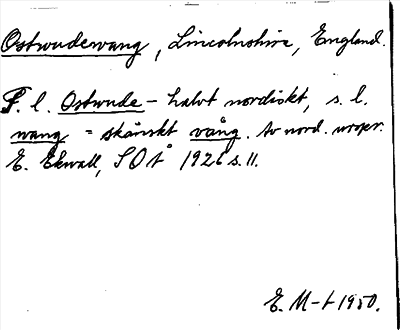 Ostwudewang, Lincolnshire, England.
F. l. Ostwude - halvt nordiskt, s. l.
wang = skånskt vång. Av nord. urspr.
E. Ekwall, SOÅ 1926 s. 11.
E. M-t 1950.